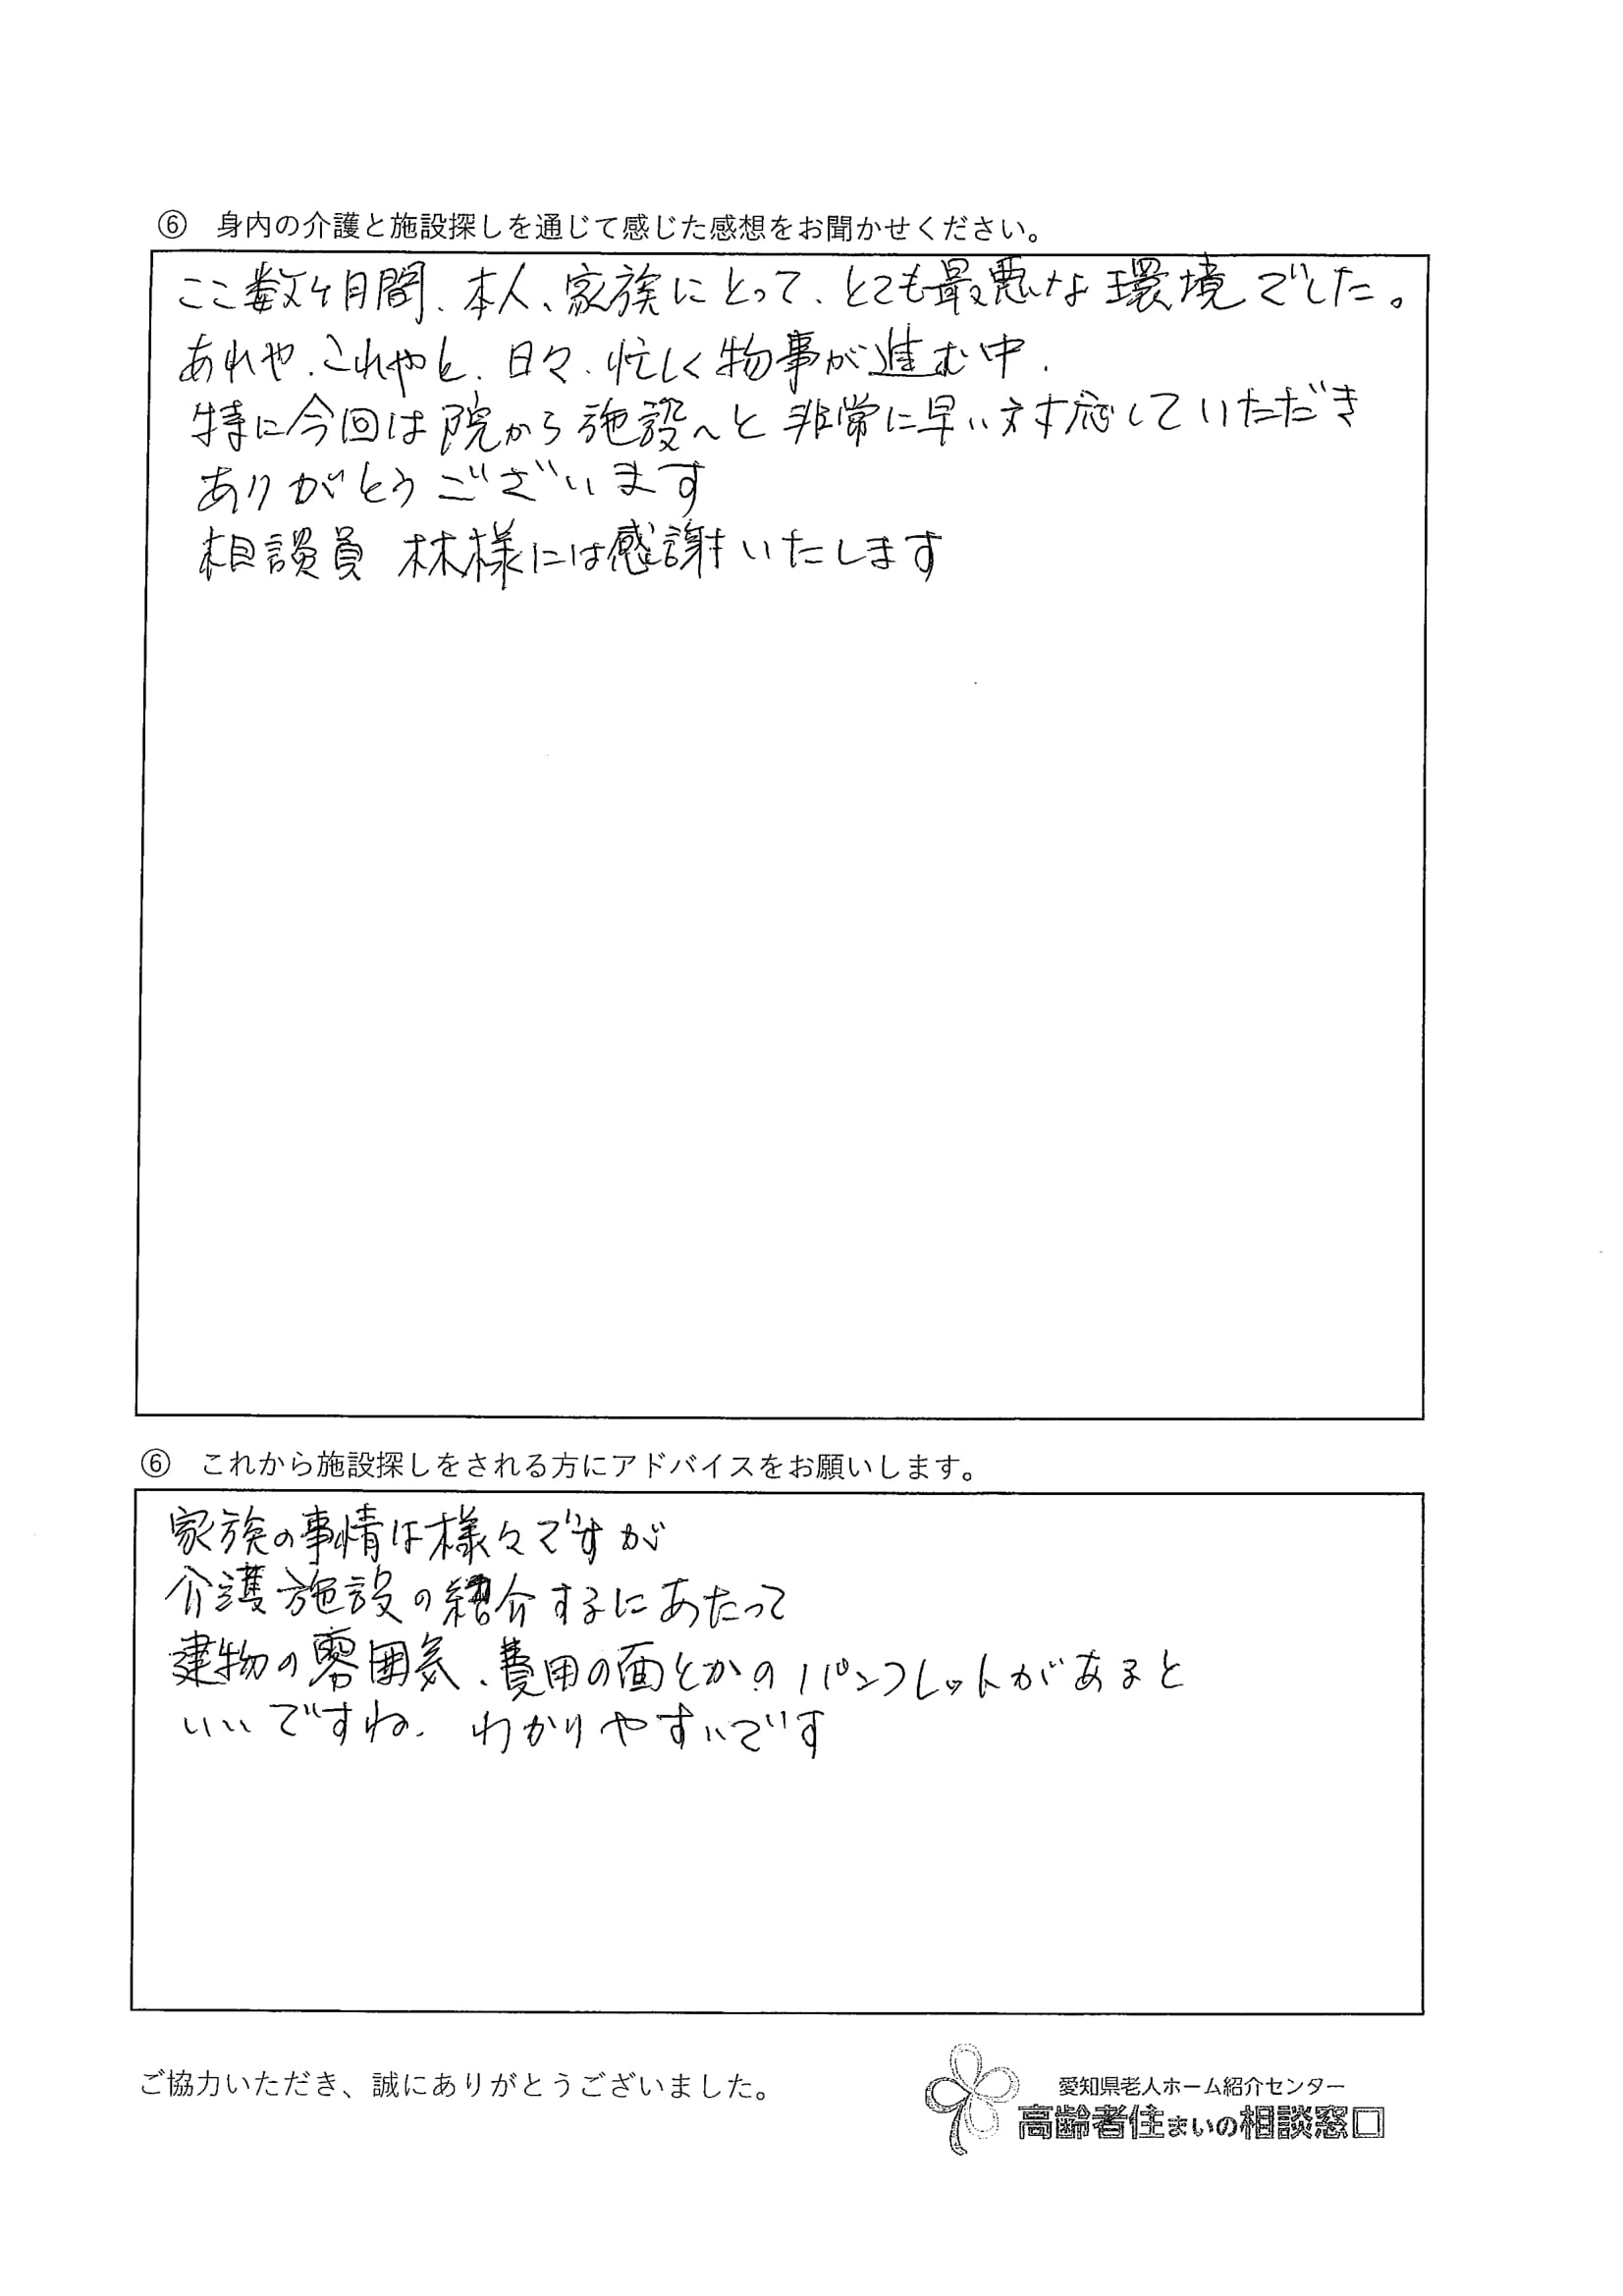 ⑥ 身内の介護と施設探しを通じて感じた感想をお聞かせください。
ここ数ヶ月間、本人、家族にとって、とても最悪な環境でした。
あれや、これやと、日々、忙しく物事が進む中、
特に今回は院から施設へと非常に早い対応していただき
ありがとうございます
相談員 林様には感謝いたします
⑥ これから施設探しをされる方にアドバイスをお願いします。
家族の事情は様々ですが
介護施設の紹介するにあたって
建物の雰囲気、費用の面とかのパンフレットがあると
いいですね、わかりやすいです
ご協力いただき、誠にありがとうございました。
愛知県老人ホーム紹介センター
高齢者住まいの相談窓口